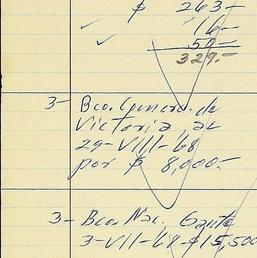 $ 263-
16-
50-
329.-
3- Bco. General de
Victoria al
29-VIII-68
por $ 8,000.-
3- Bco. Nac. Gante
3-VII-68-$15,500